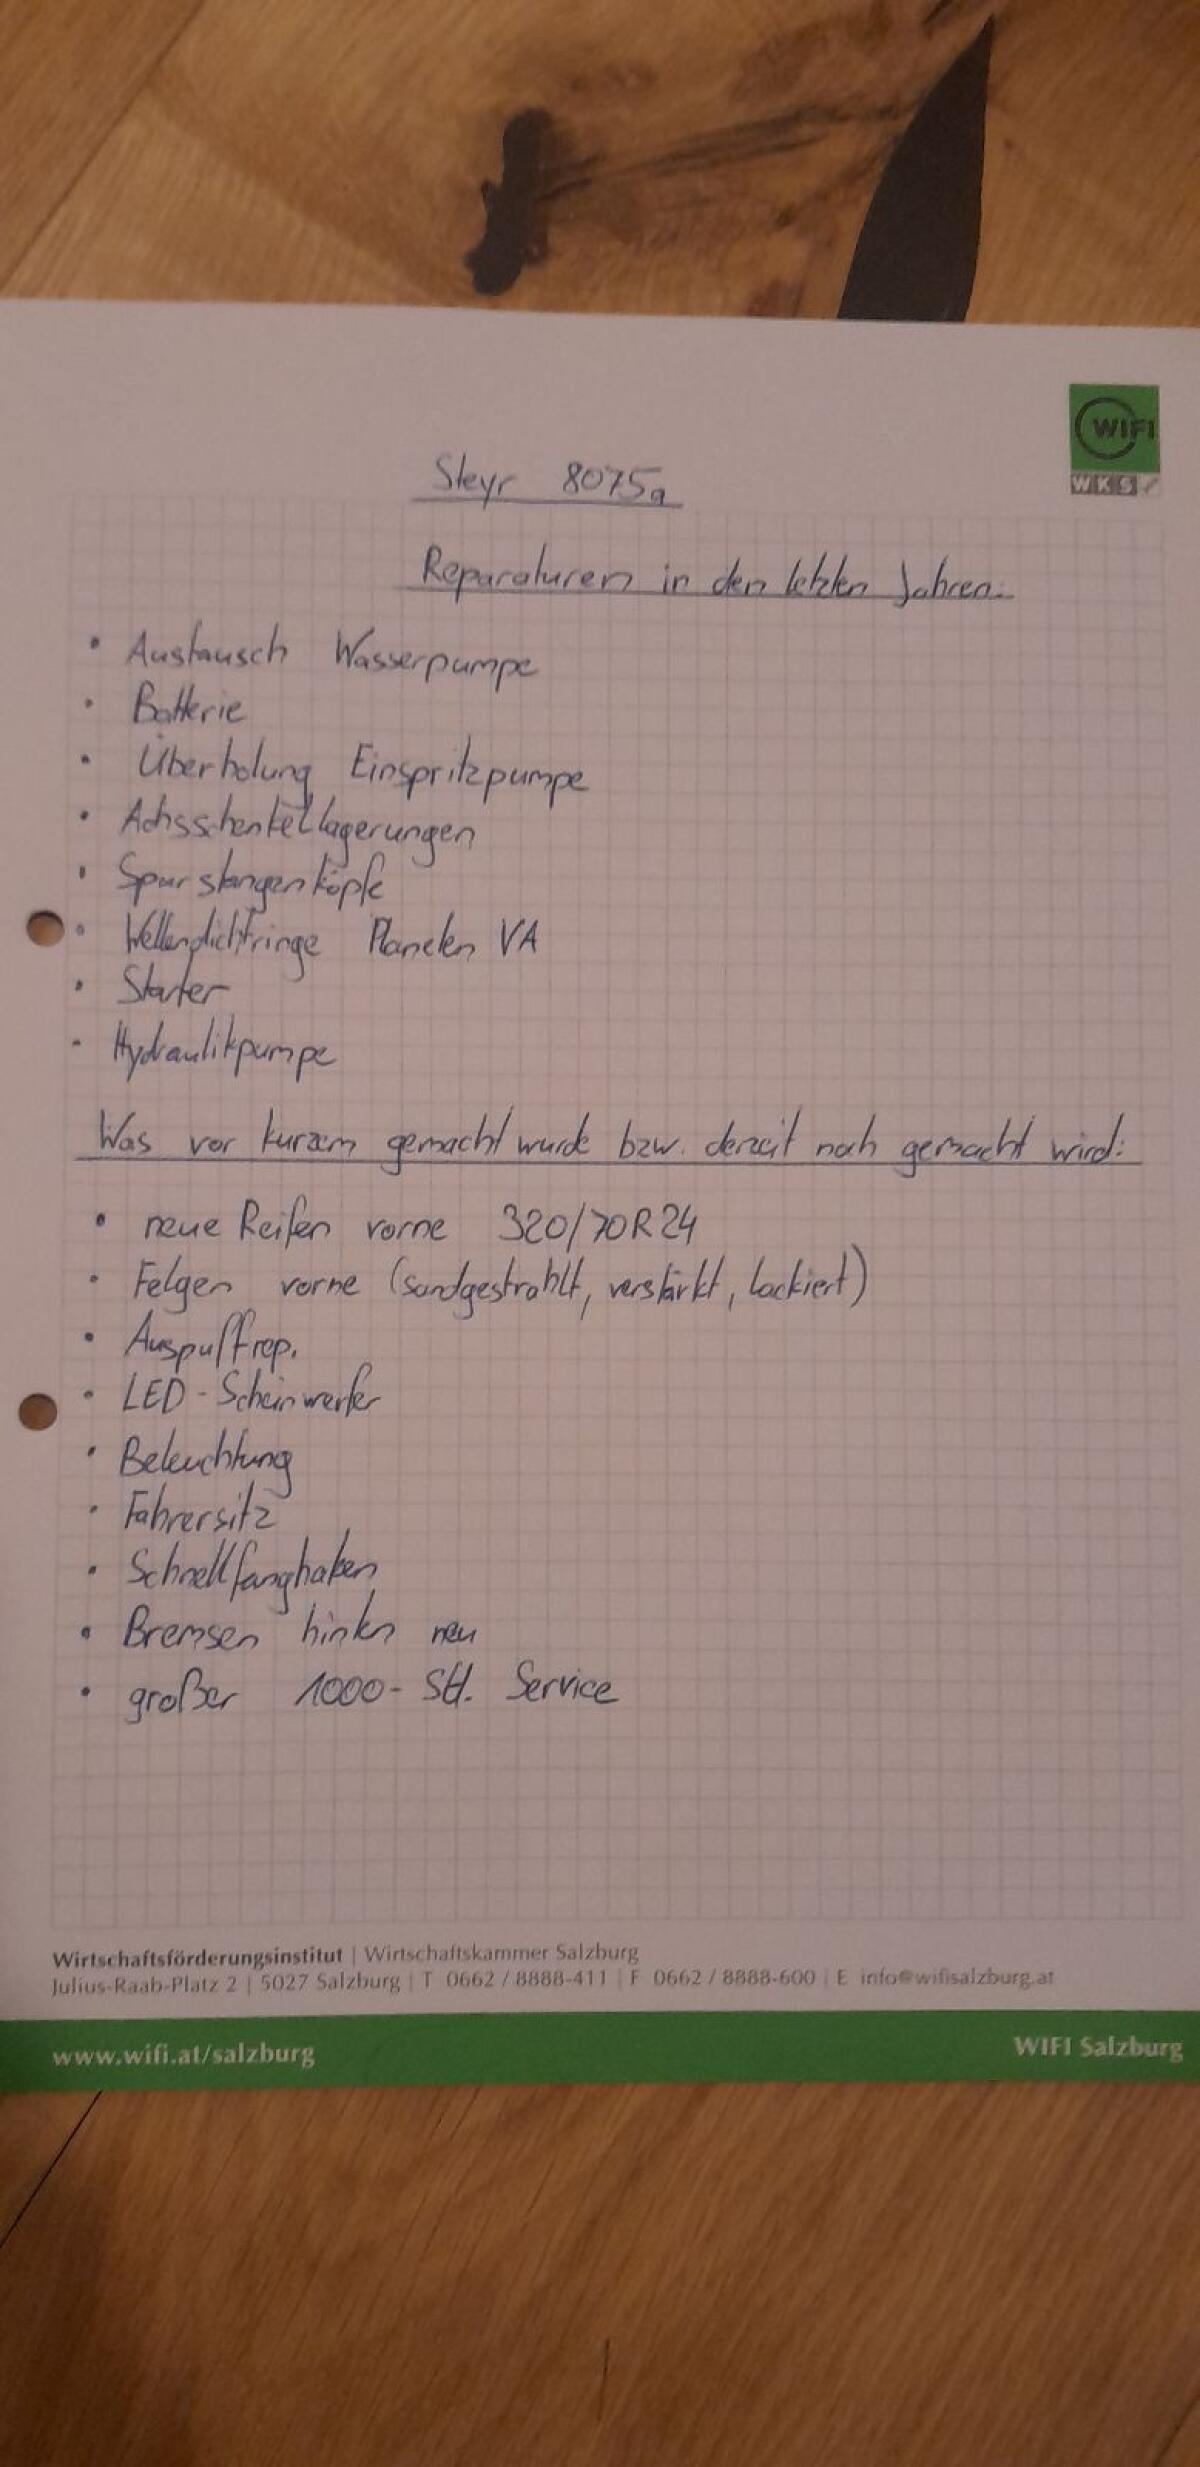 WIFI
WKS
Steyr 8075a
Reparaturen in den letzten Jahren:
• Austausch Wasserpumpe
• Batterie
• Überholung Einspritzpumpe
• Achsschenkellagerungen
• Spurstangenköpfe
• Wellendichtringe Planeten VA
• Starter
• Hydraulikpumpe
Was vor kurzem gemacht wurde bzw. derzeit noch gemacht wird:
• neue Reifen vorne 320/70R24
• Felgen vorne (sandgestrahlt, verstärkt, lackiert)
• Auspuffrep.
• LED-Scheinwerfer
• Beleuchtung
• Fahrersitz
• Schnellfanghaken
• Bremsen hinten neu
• großer 1000- Std. Service
Wirtschaftsförderungsinstitut | Wirtschaftskammer Salzburg
Julius-Raab-Platz 2 | 5027 Salzburg | T 0662 / 8888-411 | F 0662 / 8888-600 | E info@wifisalzburg.at
www.wifi.at/salzburg WIFI Salzburg